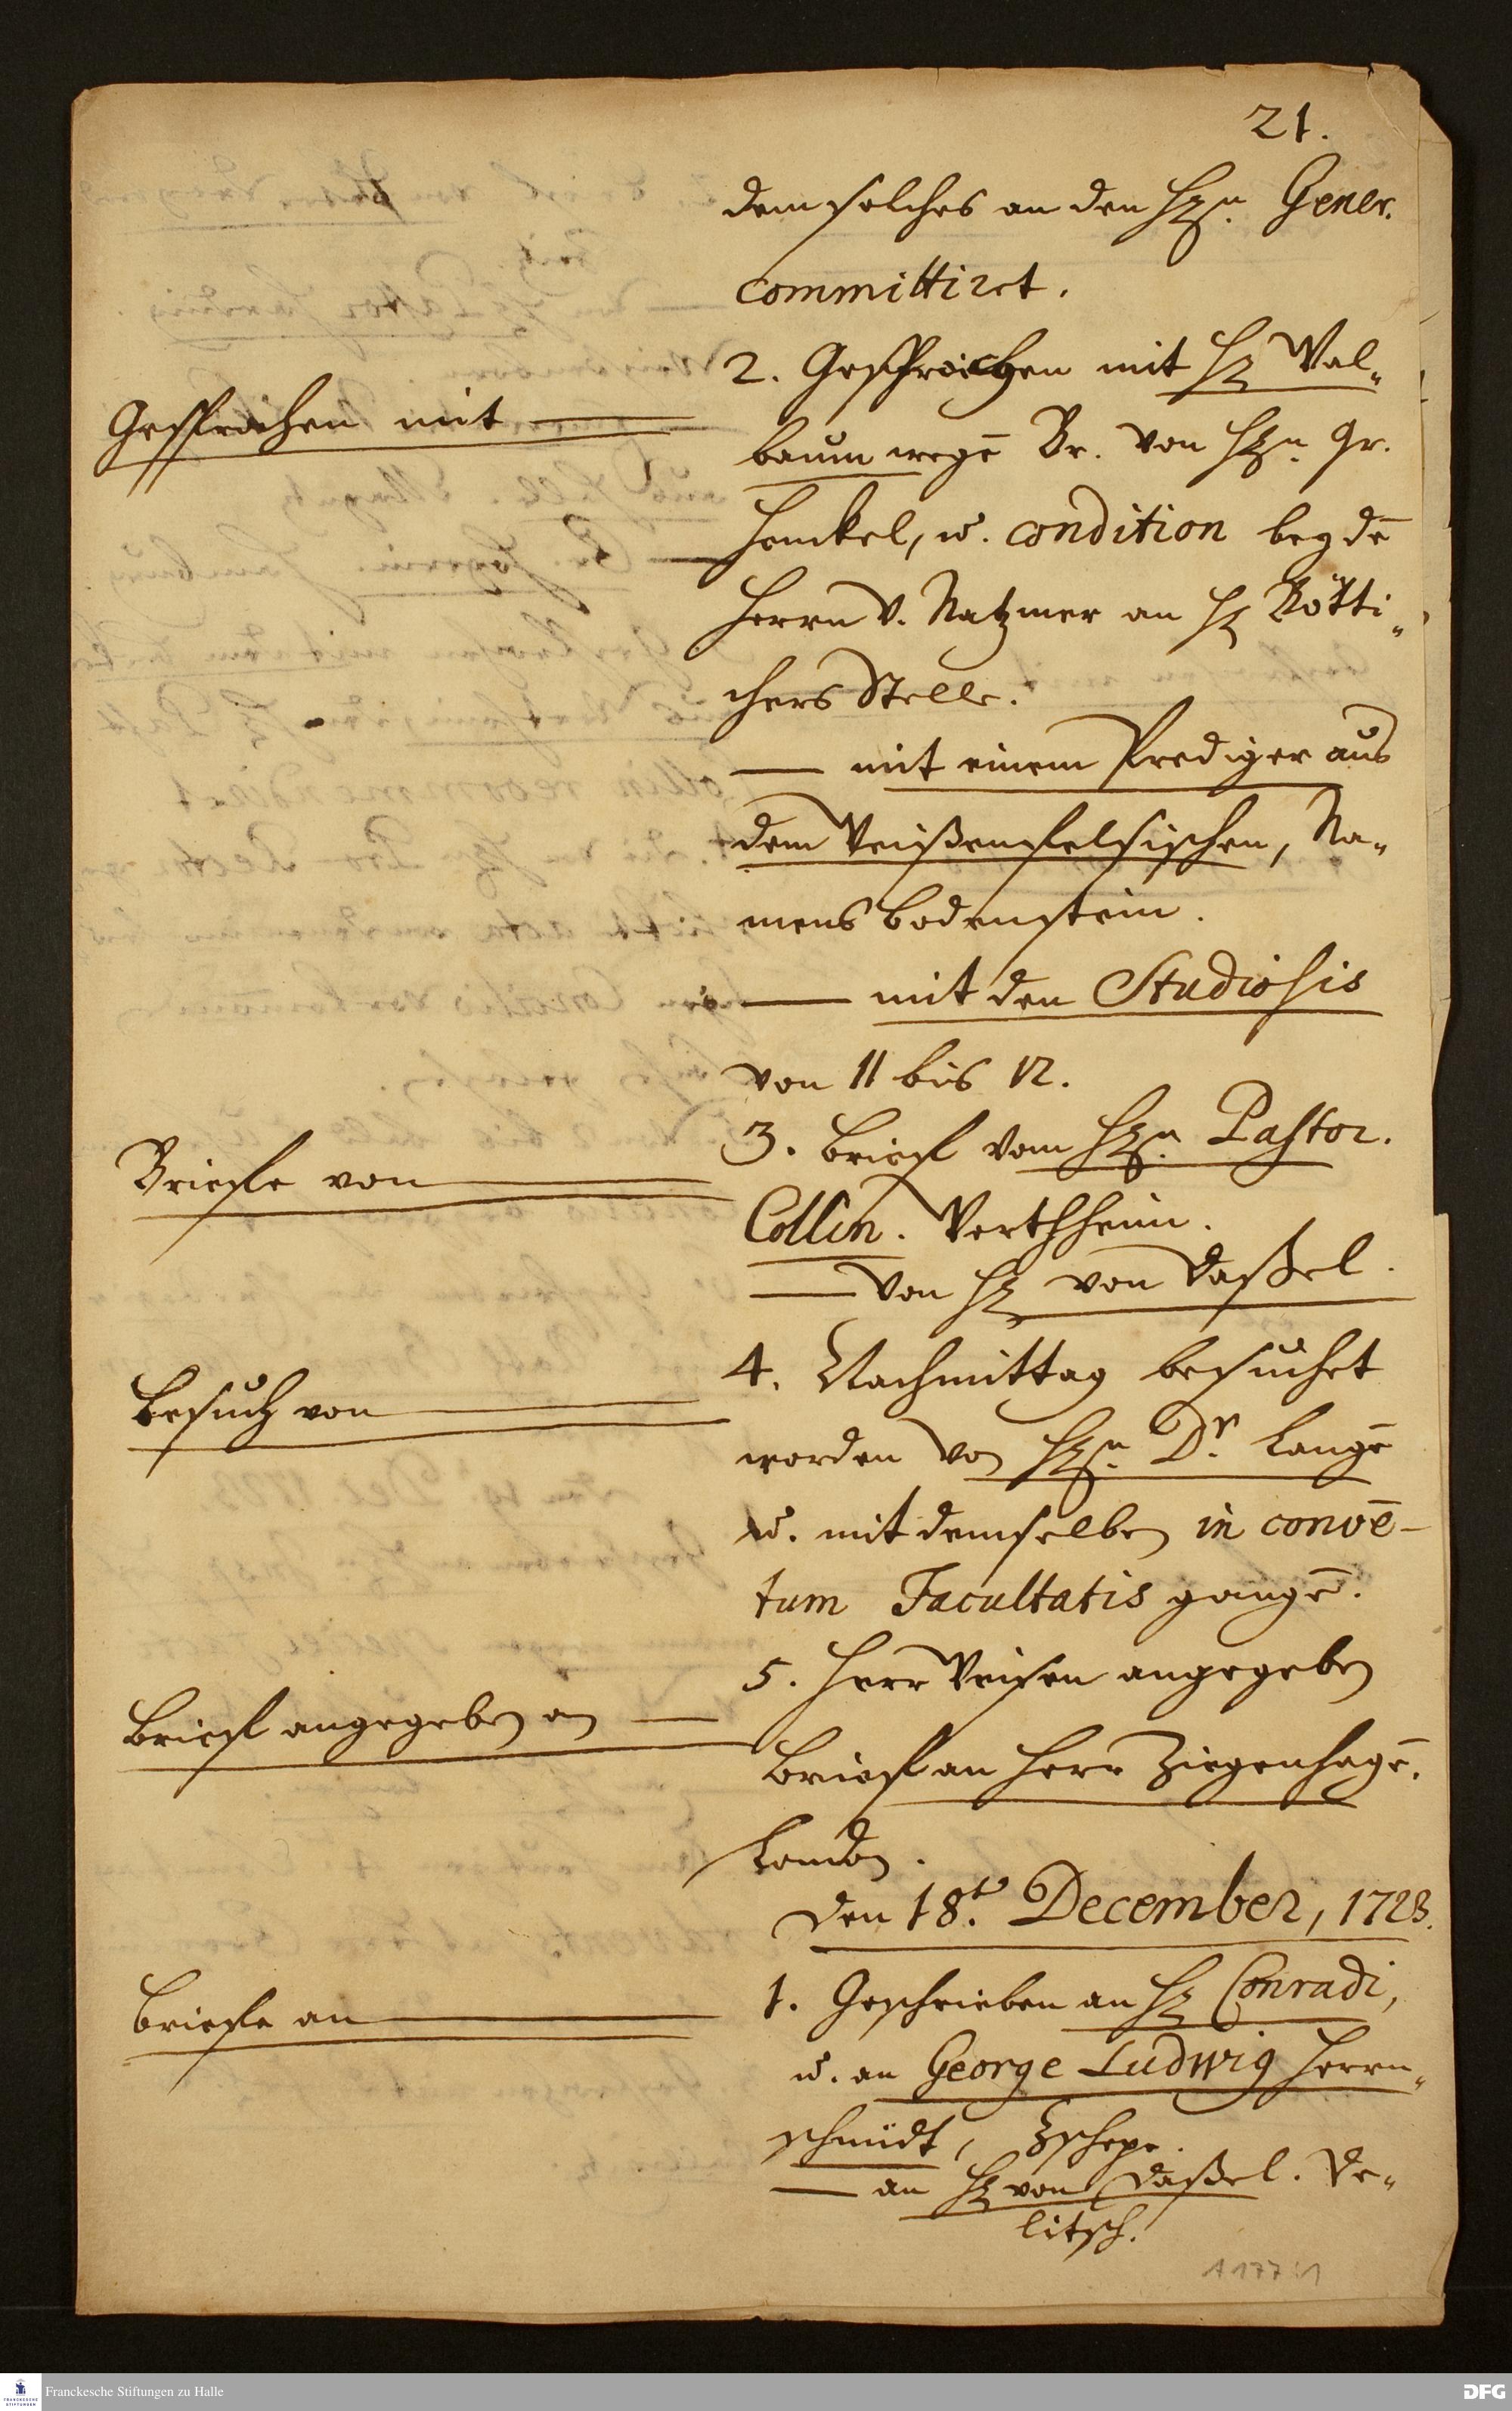 21.
dem solches an den Hrn. Gener.
committiret.
Gesprochen mit
2. Gesprochen mit Hr Wal„
baum wegē Br. von Hrn. Gr.
Henckel, u. condition bey dē
Herrn v. Natzmer an Hr Bötti„
chers Stelle.
— mit einem Prediger aus
dem Weißenfelsischen, Na„
mens Bodenstein.
— mit den Studiosis
von 11 bis 12.
Briefe von
3. Brief vom Hrn. Pastor.
Collin. Werthheim.
— von Hr von Daßel.
Besuch von
4. Nachmittag besuchet
worden von Hrn. Dr. Langē
u. mit demselben in convē-
tum Facultatis gangē.
5. Herr Weisen angegeben
Brief angegeben an
Brief an Herr Ziegenhagē.
London.
Den 18.t December, 1723.
Briefe an
1. Geschrieben an Hr Conradi,
u. an George Ludwig Herrn„
schmidt, Zschepe.
— an Hr von Daßel. De„
litsch.
A 177:1
Franckesche Stiftungen zu Halle
DFG